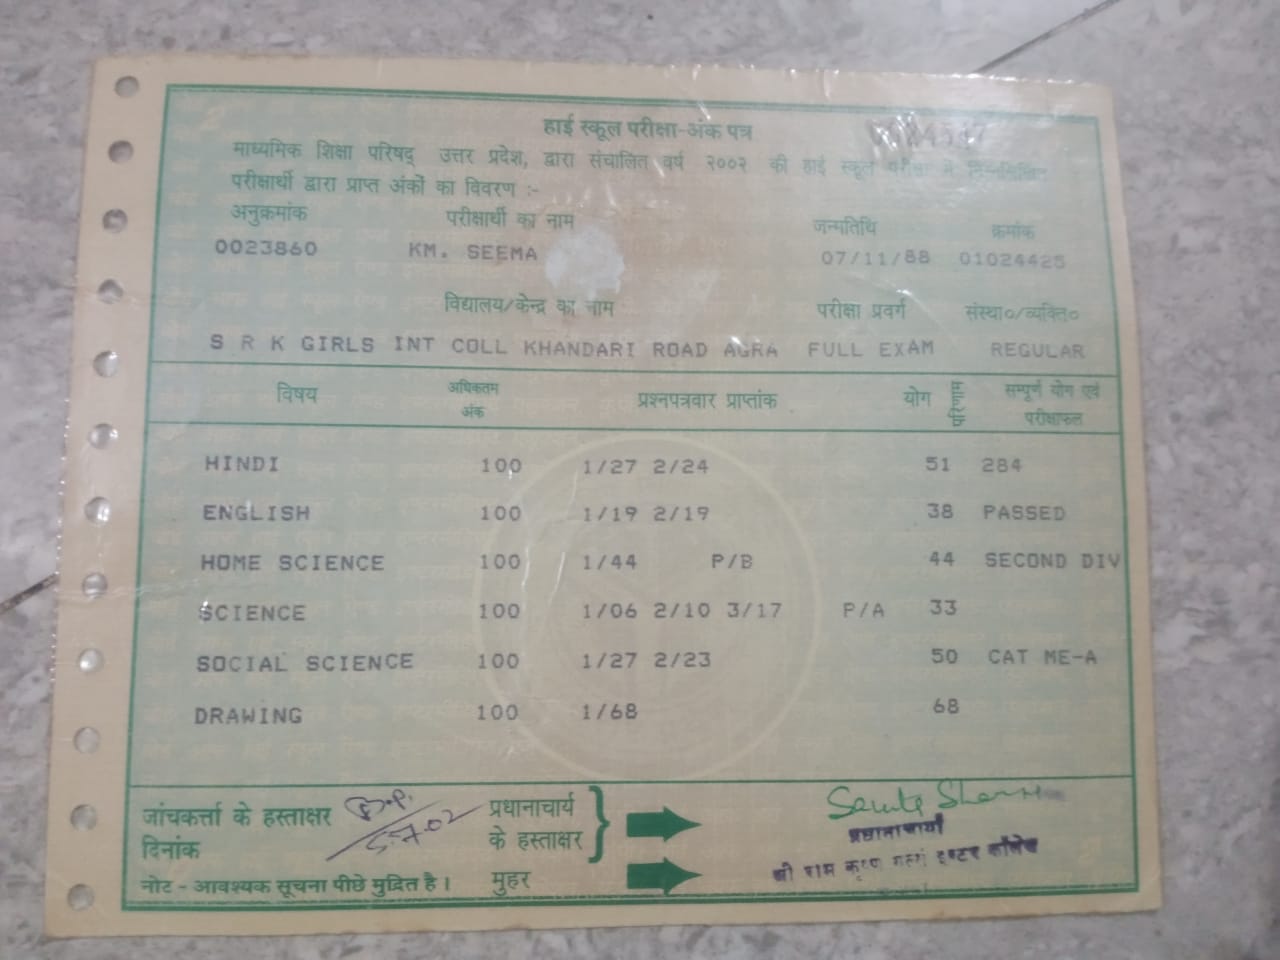 हाई स्कूल परीक्षा-अंक पत्र
माध्यमिक शिक्षा परिषद् उत्तर प्रदेश, द्वारा संचालित वर्ष २००२ की हाई स्कूल परीक्षा में निम्नलिखित
परीक्षार्थी द्वारा प्राप्त अंकों का विवरण :-
अनुक्रमांक परीक्षार्थी का नाम जन्मतिथि क्रमांक
0023860 KM. SEEMA 07/11/88 01024425
विद्यालय/केन्द्र का नाम परीक्षा प्रवर्ग संस्था०/व्यक्ति०
S R K GIRLS INT COLL KHANDARI ROAD AGRA FULL EXAM REGULAR
विषय अधिकतम अंक प्रश्नपत्रवार प्राप्तांक योग परिणाम सम्पूर्ण योग एवं परीक्षाफल
HINDI 100 1/27 2/24 51 284
ENGLISH 100 1/19 2/19 38 PASSED
HOME SCIENCE 100 1/44 P/B 44 SECOND DIV
SCIENCE 100 1/06 2/10 3/17 P/A 33
SOCIAL SCIENCE 100 1/27 2/23 50 CAT ME-A
DRAWING 100 1/68 68
जांचकर्त्ता के हस्ताक्षर प्रधानाचार्य
5-7-02
दिनांक के हस्ताक्षर
प्रधानाचार्या
श्री राम कृष्ण इण्टर कॉलेज
नोट - आवश्यक सूचना पीछे मुद्रित है। मुहर